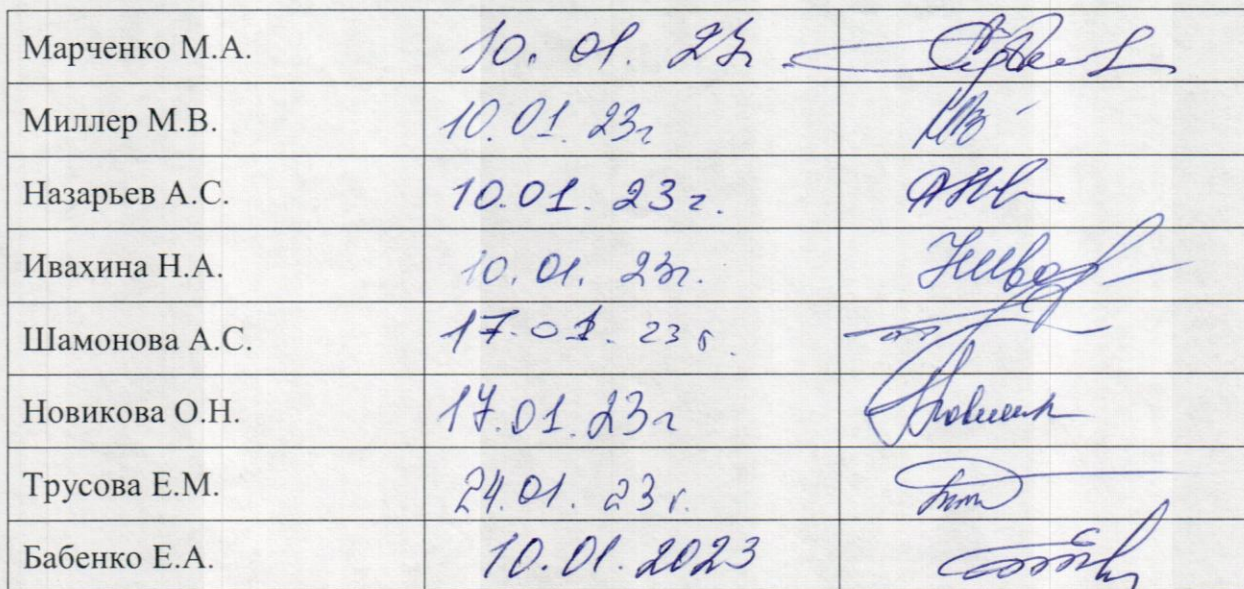 Марченко М.А. 10. 01. 23г.
Миллер М.В. 10.01. 23г
Назарьев А.С. 10.01. 23 г.
Ивахина Н.А. 10. 01. 23г.
Шамонова А.С. 17.01. 23 г.
Новикова О.Н. 17.01. 23г
Трусова Е.М. 24.01. 23 г.
Бабенко Е.А. 10.01.2023